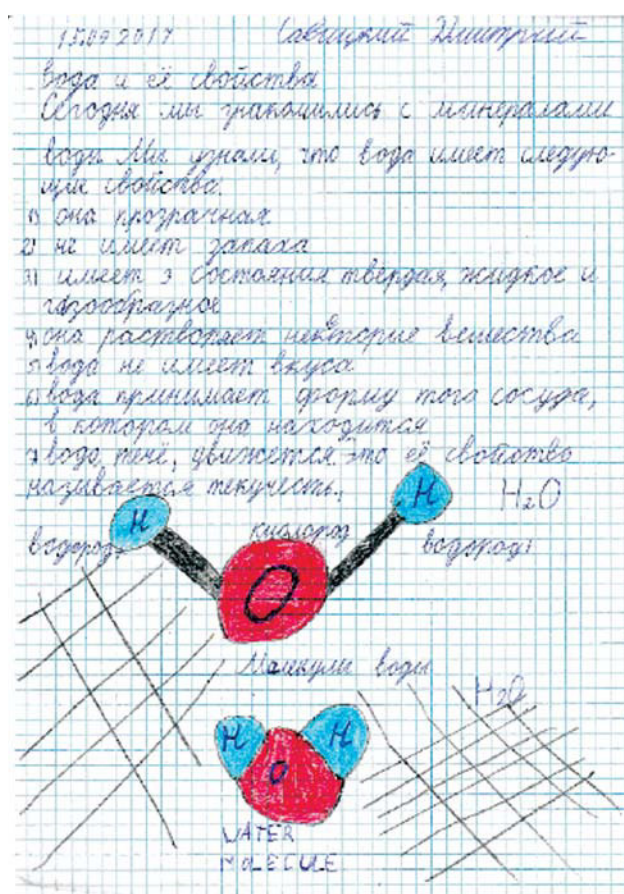 15.09.2017 Савицкий Дмитрий
вода и её свойства
Сегодня мы знакомились с минералами
воды Мы узнали, что вода имеет следую-
щие свойства.
1) она прозрачная
2) не имеет запаха
3) имеет 3 состояния твёрдая, жидкое и
газообразное
4) она растворяет некоторые вещества
5) вода не имеет вкуса
6) вода принимает форму того сосуда,
в котором она находится
7) вода течё, движется. это её свойство
называется текучесть.
H H H₂O
водород кислород водород
O
Малекулы воды
H₂O
H H
O
WATER
MOLECULE